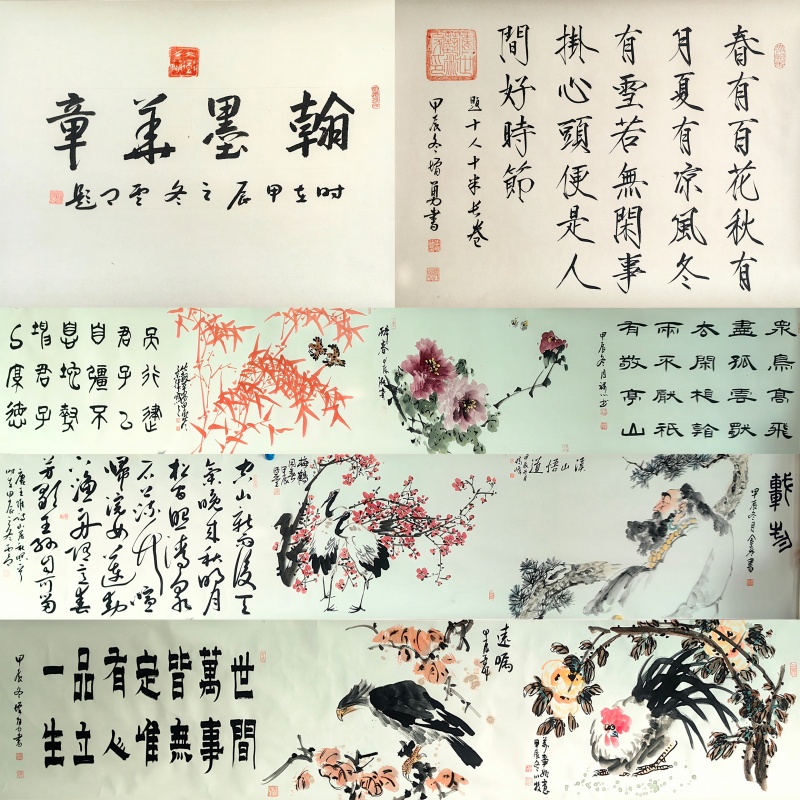 翰墨華章
时在甲辰之冬雲題
春有百花秋有
月夏有涼風冬
有雪若無閑事
掛心頭便是人
間好時節
題十人十米长卷
甲辰冬勇書
眾鳥高飛
盡孤雲獨
去閑相看
兩不厭祇
有敬亭山
甲辰冬月
春
天行健
君子以
自彊不
息地勢
坤君子
以厚德
載物
甲辰冬月書
溪山悟道
梅鶴
同春
甲辰
空山新雨後天
氣晚來秋明月
松間照清泉
石上流竹喧
歸浣女蓮動
下漁舟隨意春
芳歇王孫自可留
唐王維詩山居秋暝
萬事如意
甲辰冬
遠矚
甲辰冬
世間
萬事
皆無
定唯
有人
品立
一生
甲辰冬書